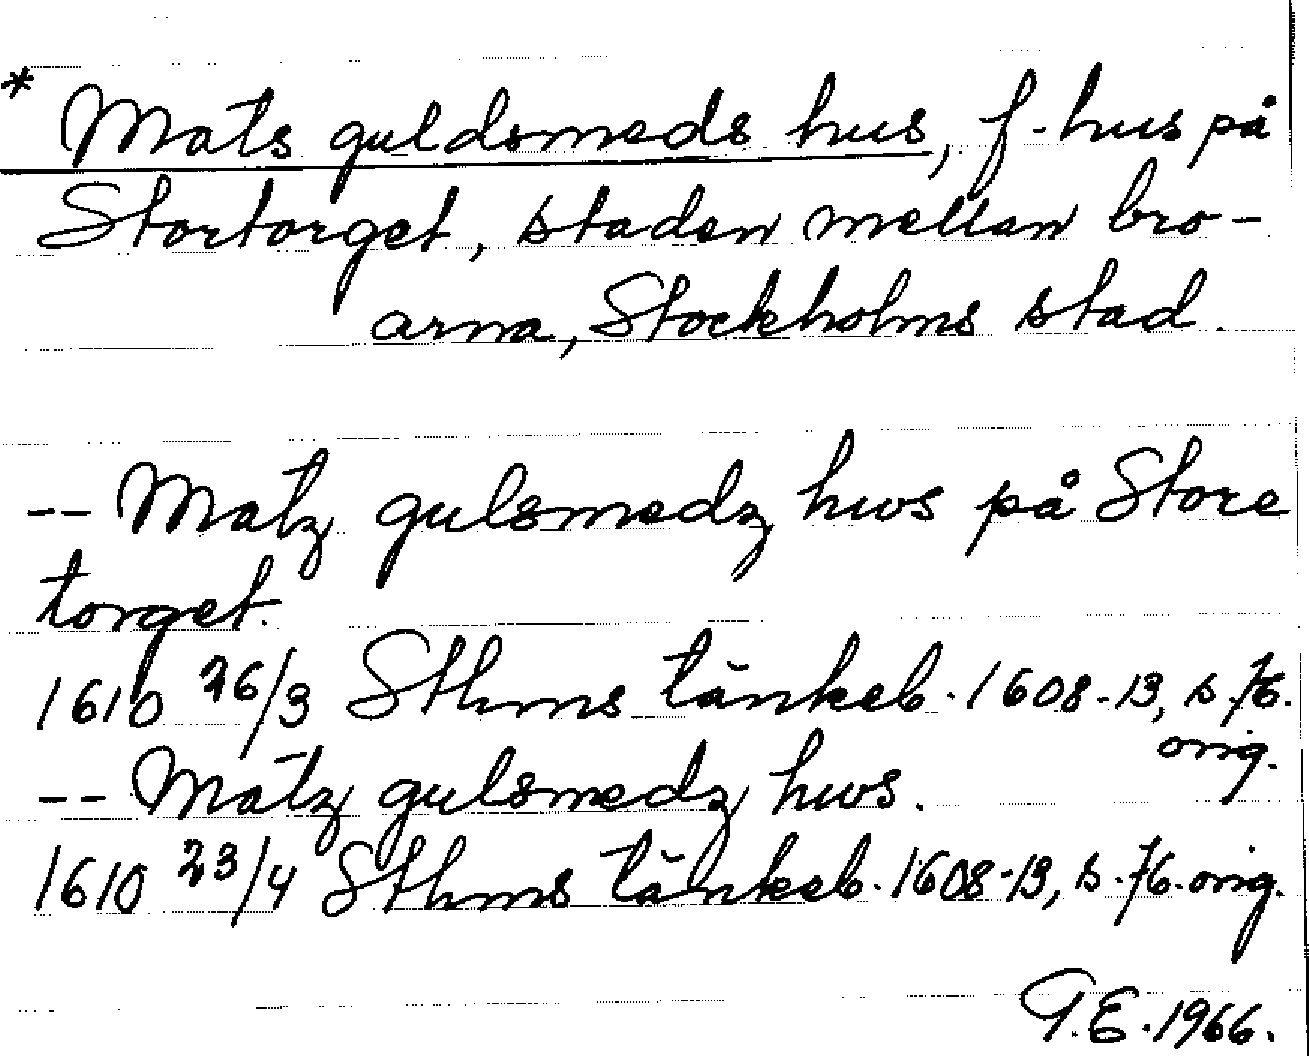 * Mats guldsmeds hus, f. hus på
Stortorget, staden mellan bro-
arna, Stockholms stad.
-- Matz gulsmedz hws på Store
torget.
1610 26/3 Sthms tänkeb. 1608-13, s. 76.
orig.
-- Matz gulsmedz hws.
1610 23/4 Sthms tänkeb. 1608-13, s. 76. orig.
G.E. 1966.